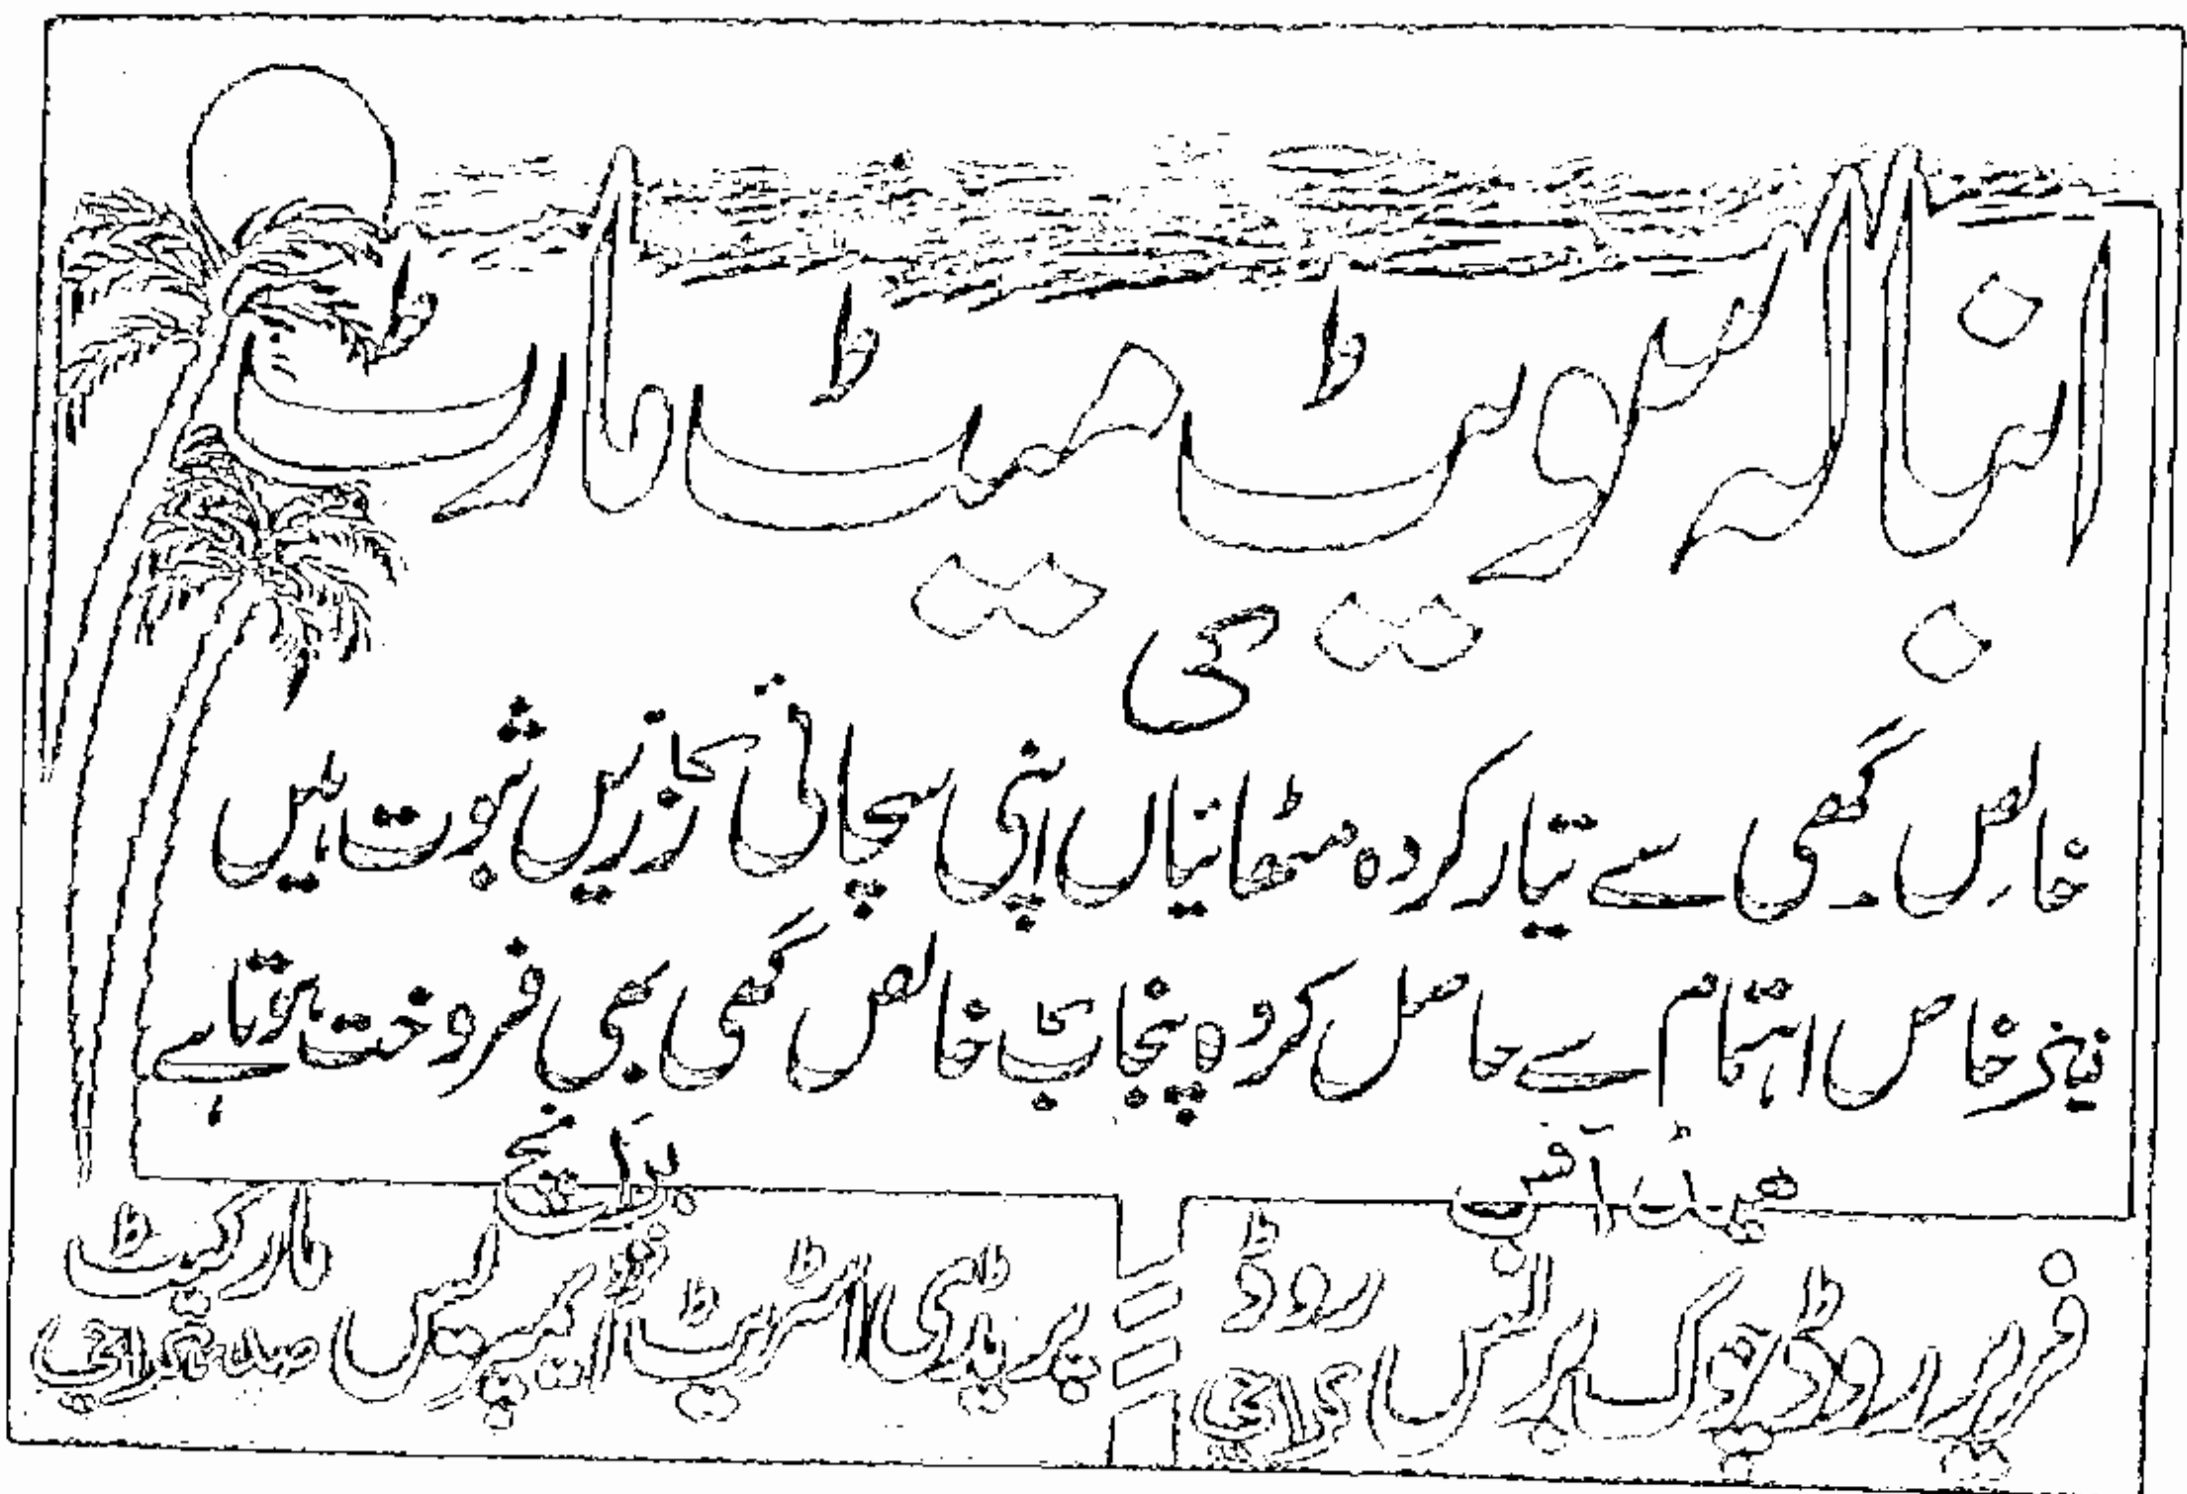 انبالہ سویٹ میٹ مارٹ
کی
خالص گھی سے تیار کردہ مٹھائیاں اپنی سچائی کا زریں ثبوت ہیں
نیز خاص اہتمام سے حاصل کردہ پنجاب کا خالص گھی بھی فروخت ہوتا ہے
ھیڈ آفس
فریر روڈ چوک برنس روڈ کراچی
برانچ
پریڈی اسٹریٹ نزد ایمپریس مارکیٹ صدر کراچی